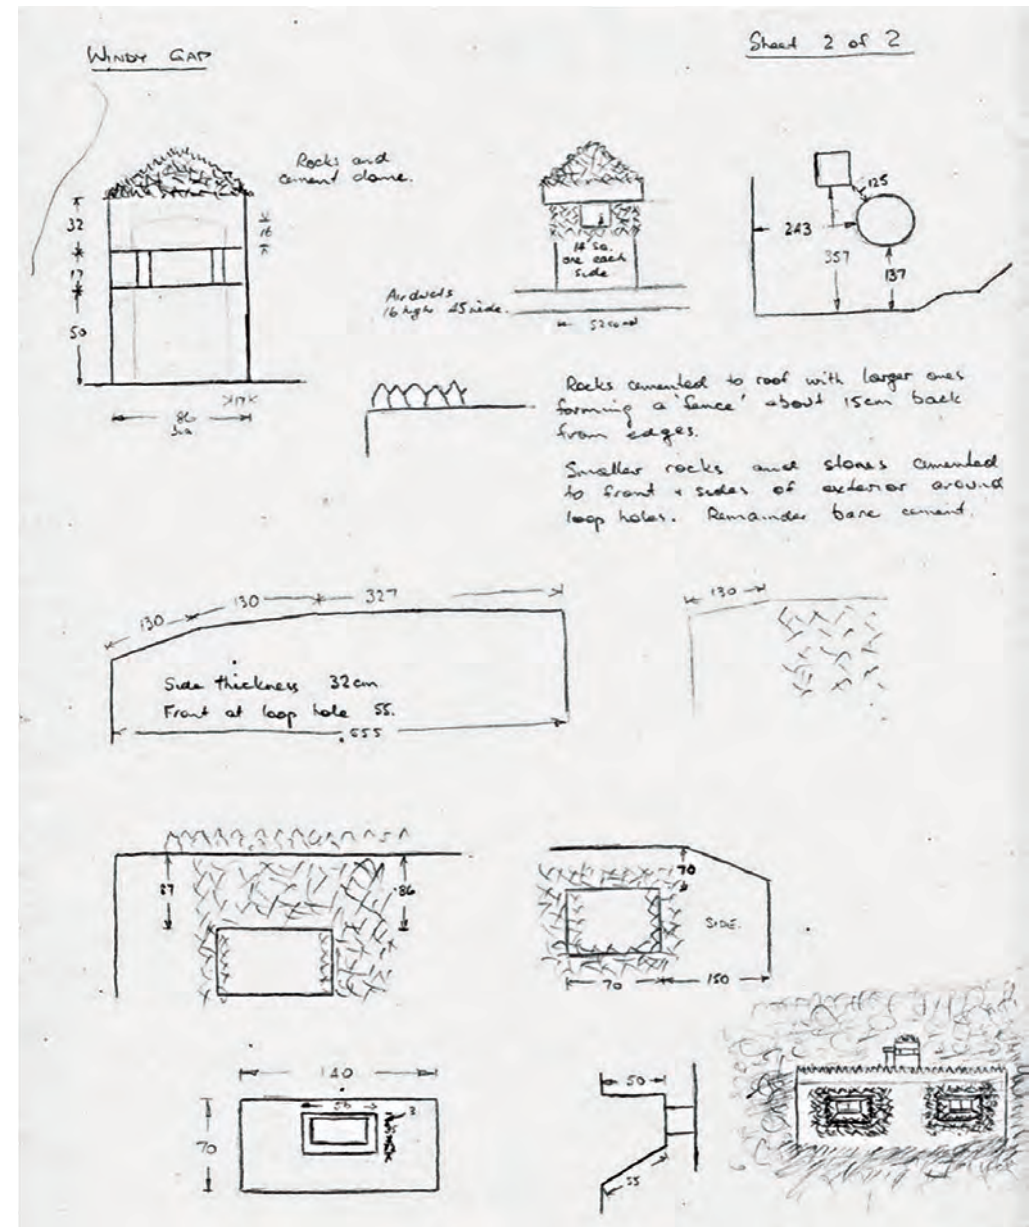 WINDY GAP
Sheet 2 of 2
Rocks and
cement dome.
32
16
17
50
86
dia
14 sq.
one each
side
Air ducts
16 high 45 wide.
125
243
357
137
Rocks cemented to roof with larger ones
forming a 'fence' about 15cm back
from edges.
Smaller rocks and stones cemented
to front + sides of exterior around
loop holes. Remainder bare cement.
130
130
327
130
Side thickness 32cm
Front at loop hole 55.
555
87
86
70
SIDE.
70
150
140
50
3
70
50
55